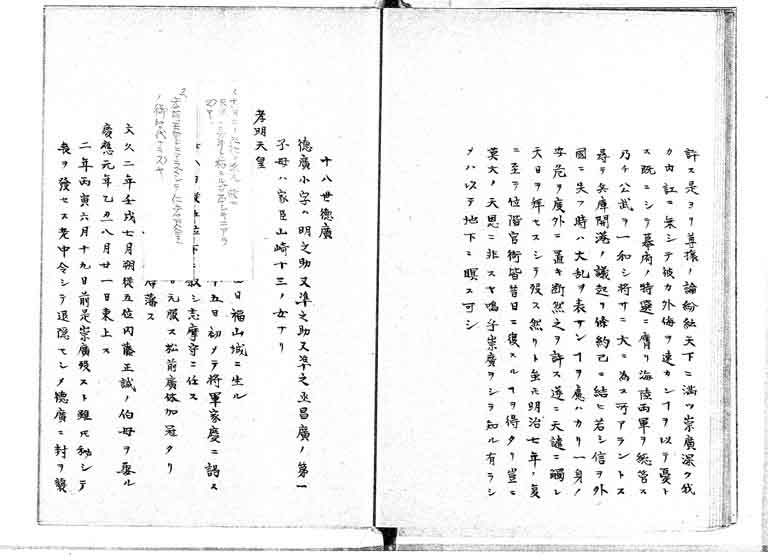 許ス是ヨリ尊攘ノ論紛紜天下ニ満ツ崇廣深ク我
カ内訌ニ乗シテ彼カ外侮ヲ逮カンヿヲ以テ憂ト
ス既ニシテ幕府ノ特選ニ膺リ海陸両軍ヲ総管ス
乃チ公武ヲ一和シ将サニ大ニ為ス可アラントス
尋テ兵庫開港ノ議起リ條約已ニ結ヒ若シ信ヲ外
國ニ失フ時ハ大乱ヲ表サンヿヲ慮ハカリ一身ノ
安危ヲ度外ニ置キ断然之ヲ許ス遂ニ天譴ニ觸レ
天日ヲ拜セスシテ歿ス然リト虽元明治七年ノ夏
ニ至テ位階官銜皆昔日ニ復スルヿヲ得タリ豈ニ
莫大ノ天恩ニ非スヤ嗚乎崇廣ヲシテ知ル有ラシ
メハ以テ地下ニ瞑ス可シ
十八世德廣
德廣小字ハ明之助又準之助又準之亟昌廣ノ第一
子母ハ家臣山﨑十三ノ女ナリ
孝明天皇
日福山城ニ生ル
十五日初メテ将軍家慶ニ謁ス
シ志摩守ニ任ス
元服ス松前廣休加冠タリ
藩ス
文久二年壬戌七月朔従五位内藤正誠ノ伯母ヲ娶ル
慶應元年乙丑八月廿一日東上ス
二年丙寅六月十九日前是崇廣歿スト雖𪜈秘シテ
喪ヲ發セス老中令シテ退隠セシメ德廣ニ封ヲ襲